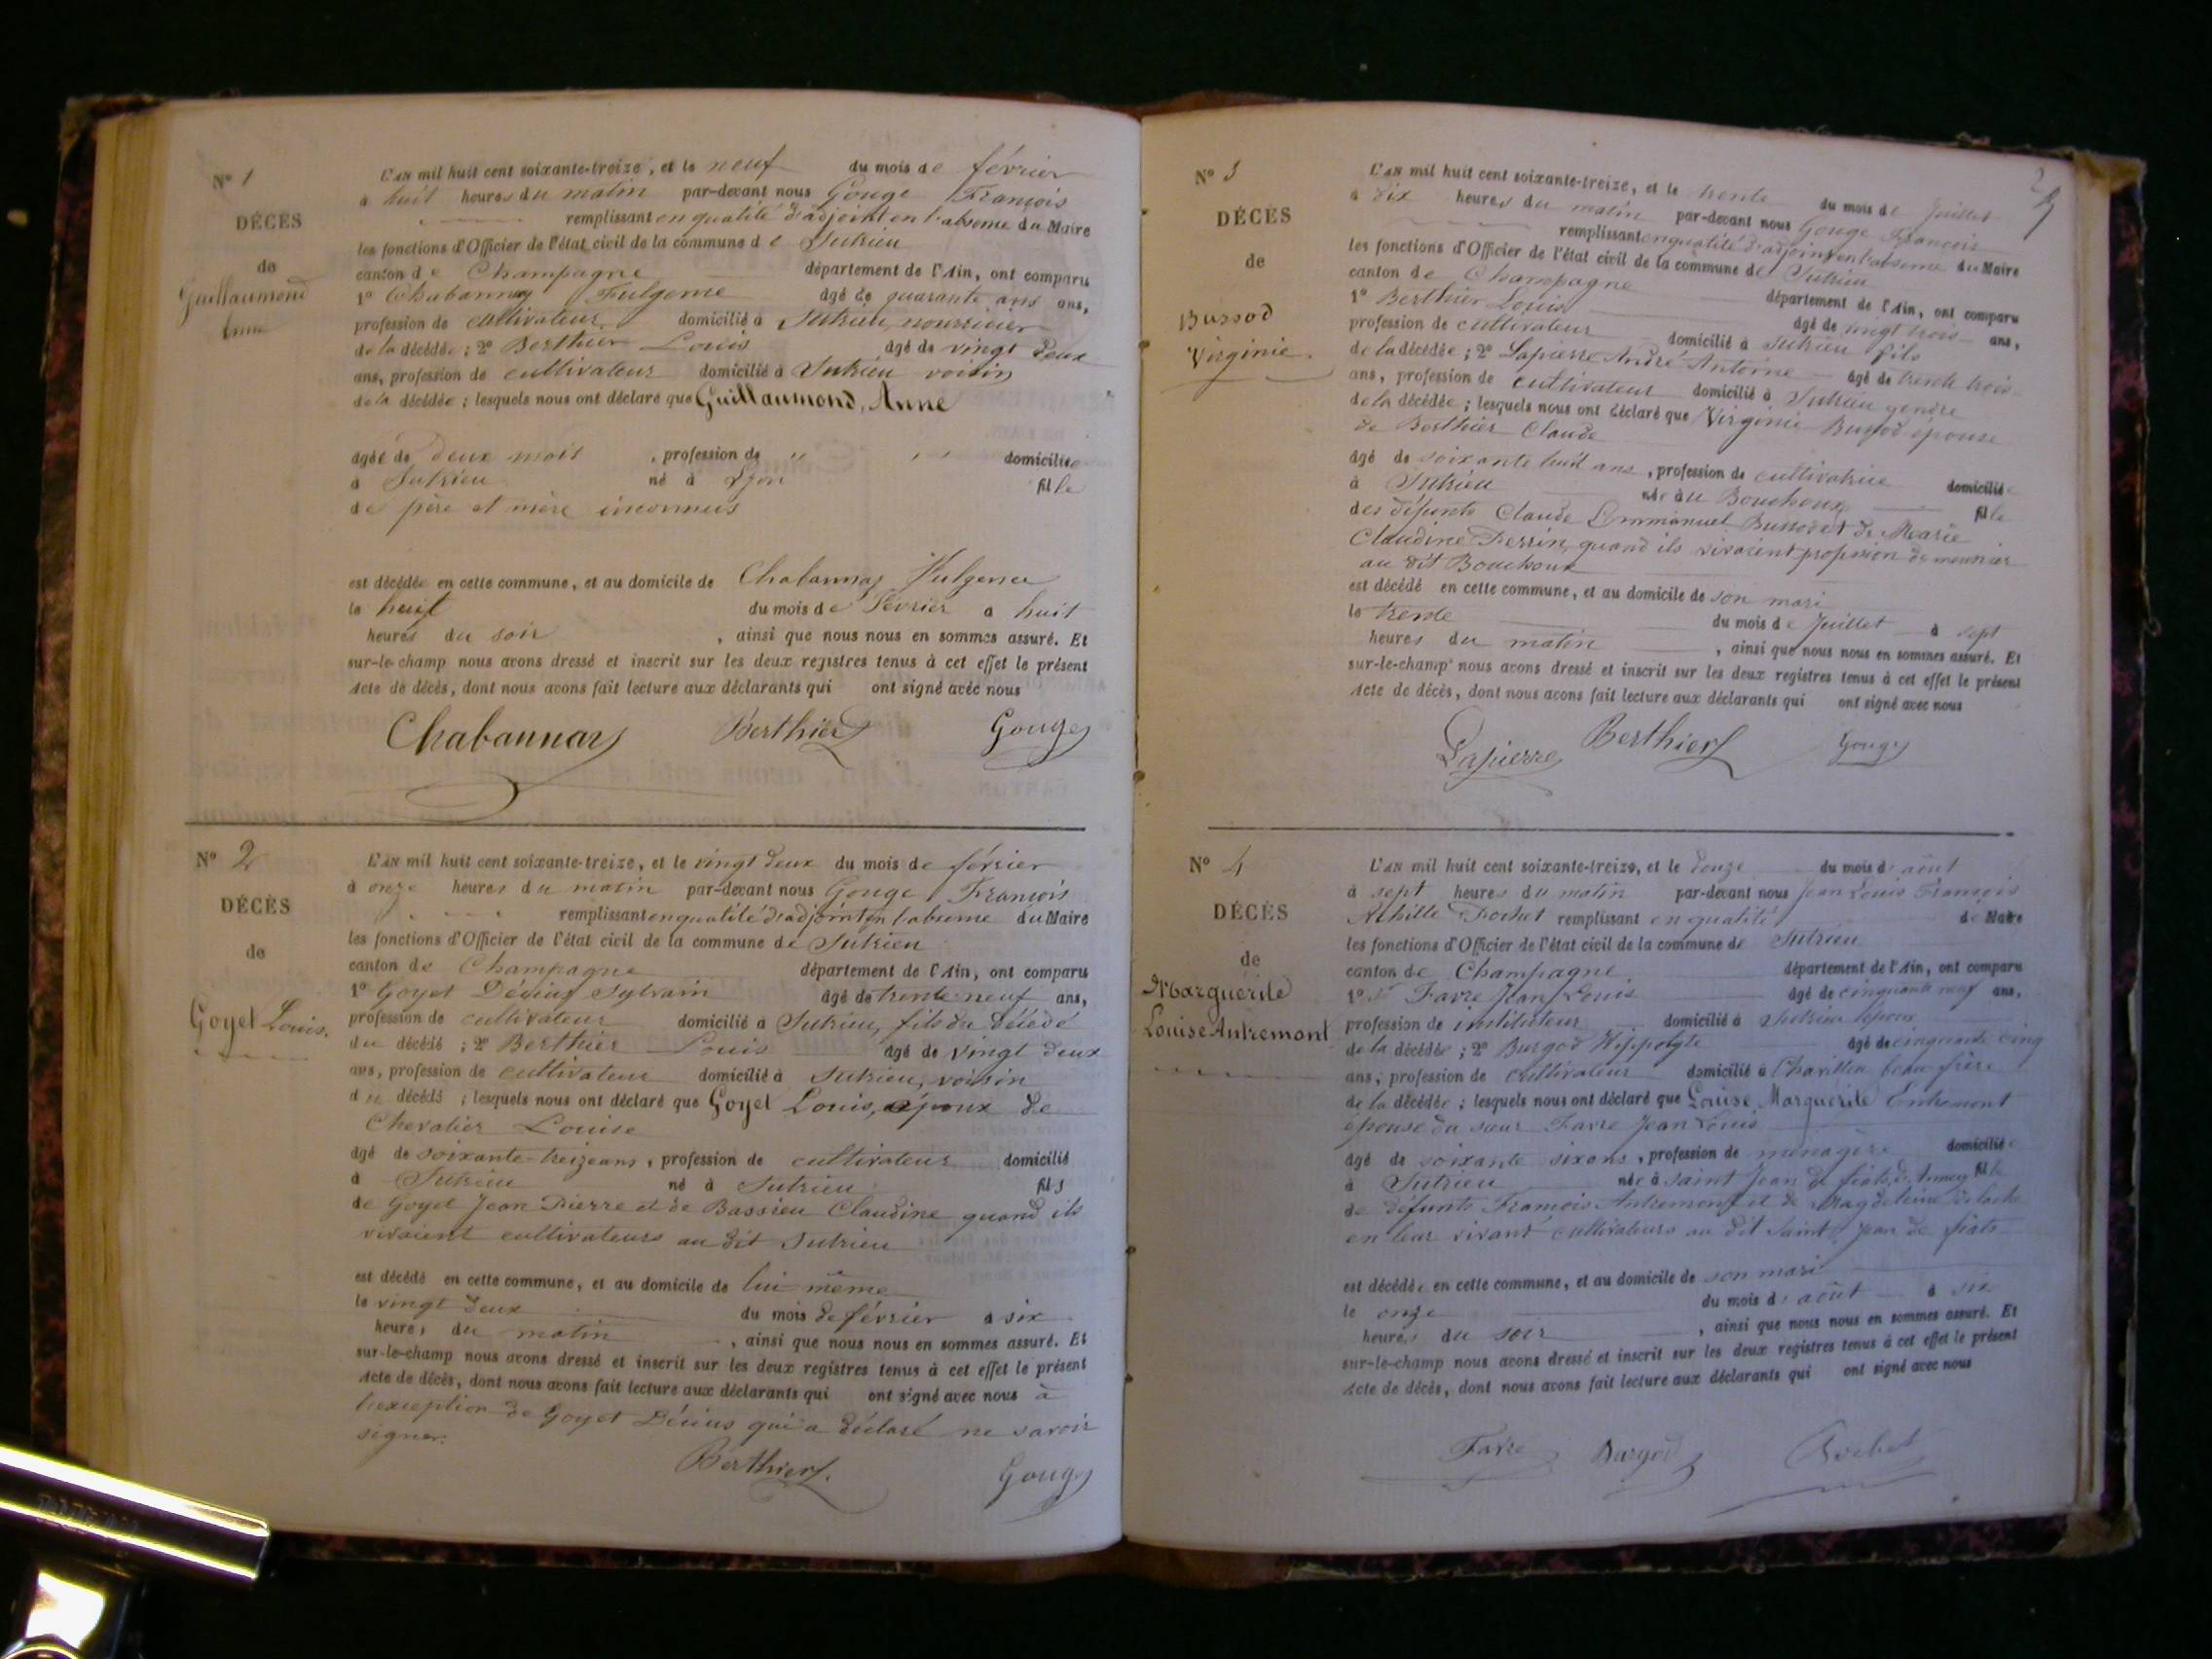 N° 1
DÉCÈS
de
Guillaumond
Anne
L'AN mil huit cent soixante-treize, et le neuf du mois de février
à huit heures du matin par-devant nous Gouge François
remplissant en qualité d'adjoint en l'absence du Maire
les fonctions d'Officier de l'état civil de la commune de Sutrieu
canton de Champagne département de l'Ain, ont comparu
1° Chabannay Fulgence âgé de quarante ans ans,
profession de cultivateur domicilié à Sutrieu, nourricier
de la décédée ; 2° Berthier Louis âgé de vingt deux
ans, profession de cultivateur domicilié à Sutrieu voisin
de la décédée ; lesquels nous ont déclaré que Guillaumond, Anne
âgée de deux mois , profession de " " domiciliée
à Sutrieu né à Lyon fille
de père et mère inconnus
est décédée en cette commune, et au domicile de Chabannay Fulgence
le huit du mois de février à huit
heures du soir , ainsi que nous nous en sommes assuré. Et
sur-le-champ nous avons dressé et inscrit sur les deux registres tenus à cet effet le présent
Acte de décès, dont nous avons fait lecture aux déclarants qui ont signé avec nous
Chabannay Berthier Gouge
N° 2
DÉCÈS
de
Goyet Louis.
L'AN mil huit cent soixante-treize, et le vingt deux du mois de février
à onze heures du matin par-devant nous Gouge François
remplissant en qualité d'adjoint en l'absence du Maire
les fonctions d'Officier de l'état civil de la commune de Sutrieu
canton de Champagne département de l'Ain, ont comparu
1° Goyet Décius Sylvain âgé de trente neuf ans,
profession de cultivateur domicilié à Sutrieu, fils du décédé
du décédé ; 2° Berthier Louis âgé de vingt deux
ans, profession de cultivateur domicilié à Sutrieu, voisin
du décédé ; lesquels nous ont déclaré que Goyet Louis, époux de
Chevalier Louise
âgé de soixante-treize ans , profession de cultivateur domicilié
à Sutrieu né à Sutrieu fils
de Goyet Jean Pierre et de Bassieu Claudine quand ils
vivaient cultivateurs au dit Sutrieu
est décédé en cette commune, et au domicile de lui même
le vingt deux du mois de février à six
heures du matin , ainsi que nous nous en sommes assuré. Et
sur-le-champ nous avons dressé et inscrit sur les deux registres tenus à cet effet le présent
Acte de décès, dont nous avons fait lecture aux déclarants qui ont signé avec nous à
l'exception de Goyet Décius qui a déclaré ne savoir
signer.
Berthier Gouge
2
N° 3
DÉCÈS
de
Bussod
Virginie.
L'AN mil huit cent soixante-treize, et le trente du mois de Juillet
à dix heures du matin par-devant nous Gouge François
remplissant en qualité d'adjoint en l'absence du Maire
les fonctions d'Officier de l'état civil de la commune de Sutrieu
canton de Champagne département de l'Ain, ont comparu
1° Berthier Louis âgé de vingt trois ans,
profession de cultivateur domicilié à Sutrieu fils
de la décédée ; 2° Lapierre André Antoine âgé de trente trois
ans, profession de cultivateur domicilié à Sutrieu gendre
de la décédée ; lesquels nous ont déclaré que Virginie Bussod épouse
de Berthier Claude
âgé de soixante huit ans , profession de cultivatrice domiciliée
à Sutrieu née au Bouchoux fille
des défunts Claude Emmanuel Bussod et de Marie
Claudine Perrin, quand ils vivaient profession de meunier
au dit Bouchoux
est décédé en cette commune, et au domicile de son mari
le trente du mois de Juillet à sept
heures du matin , ainsi que nous nous en sommes assuré. Et
sur-le-champ nous avons dressé et inscrit sur les deux registres tenus à cet effet le présent
Acte de décès, dont nous avons fait lecture aux déclarants qui ont signé avec nous
Lapierre Berthier Gouge
N° 4
DÉCÈS
de
Marguerite
Louise Antremont
L'AN mil huit cent soixante-treize, et le douze du mois d'août
à sept heures du matin par-devant nous Jean Louis François
Achille Rochet remplissant en qualité de Maire
les fonctions d'Officier de l'état civil de la commune de Sutrieu
canton de Champagne département de l'Ain, ont comparu
1° Sr Favre Jean Louis âgé de cinquante neuf ans,
profession de instituteur domicilié à Sutrieu époux
de la décédée ; 2° Burgod Hippolyte âgé de cinquante cinq
ans, profession de cultivateur domicilié à beau frère
de la décédée ; lesquels nous ont déclaré que Louise Marguerite Entremont
épouse du sieur Favre Jean Louis
âgé de soixante six ans , profession de ménagère domiciliée
à Sutrieu née à Saint Jean de fille
de défunts François Antremont et de Magdeleine
en leur vivant cultivateurs au dit Saint Jean de
est décédée en cette commune, et au domicile de son mari
le onze du mois d'août à six
heures du soir , ainsi que nous nous en sommes assuré. Et
sur-le-champ nous avons dressé et inscrit sur les deux registres tenus à cet effet le présent
Acte de décès, dont nous avons fait lecture aux déclarants qui ont signé avec nous
Favre Burgod Rochet